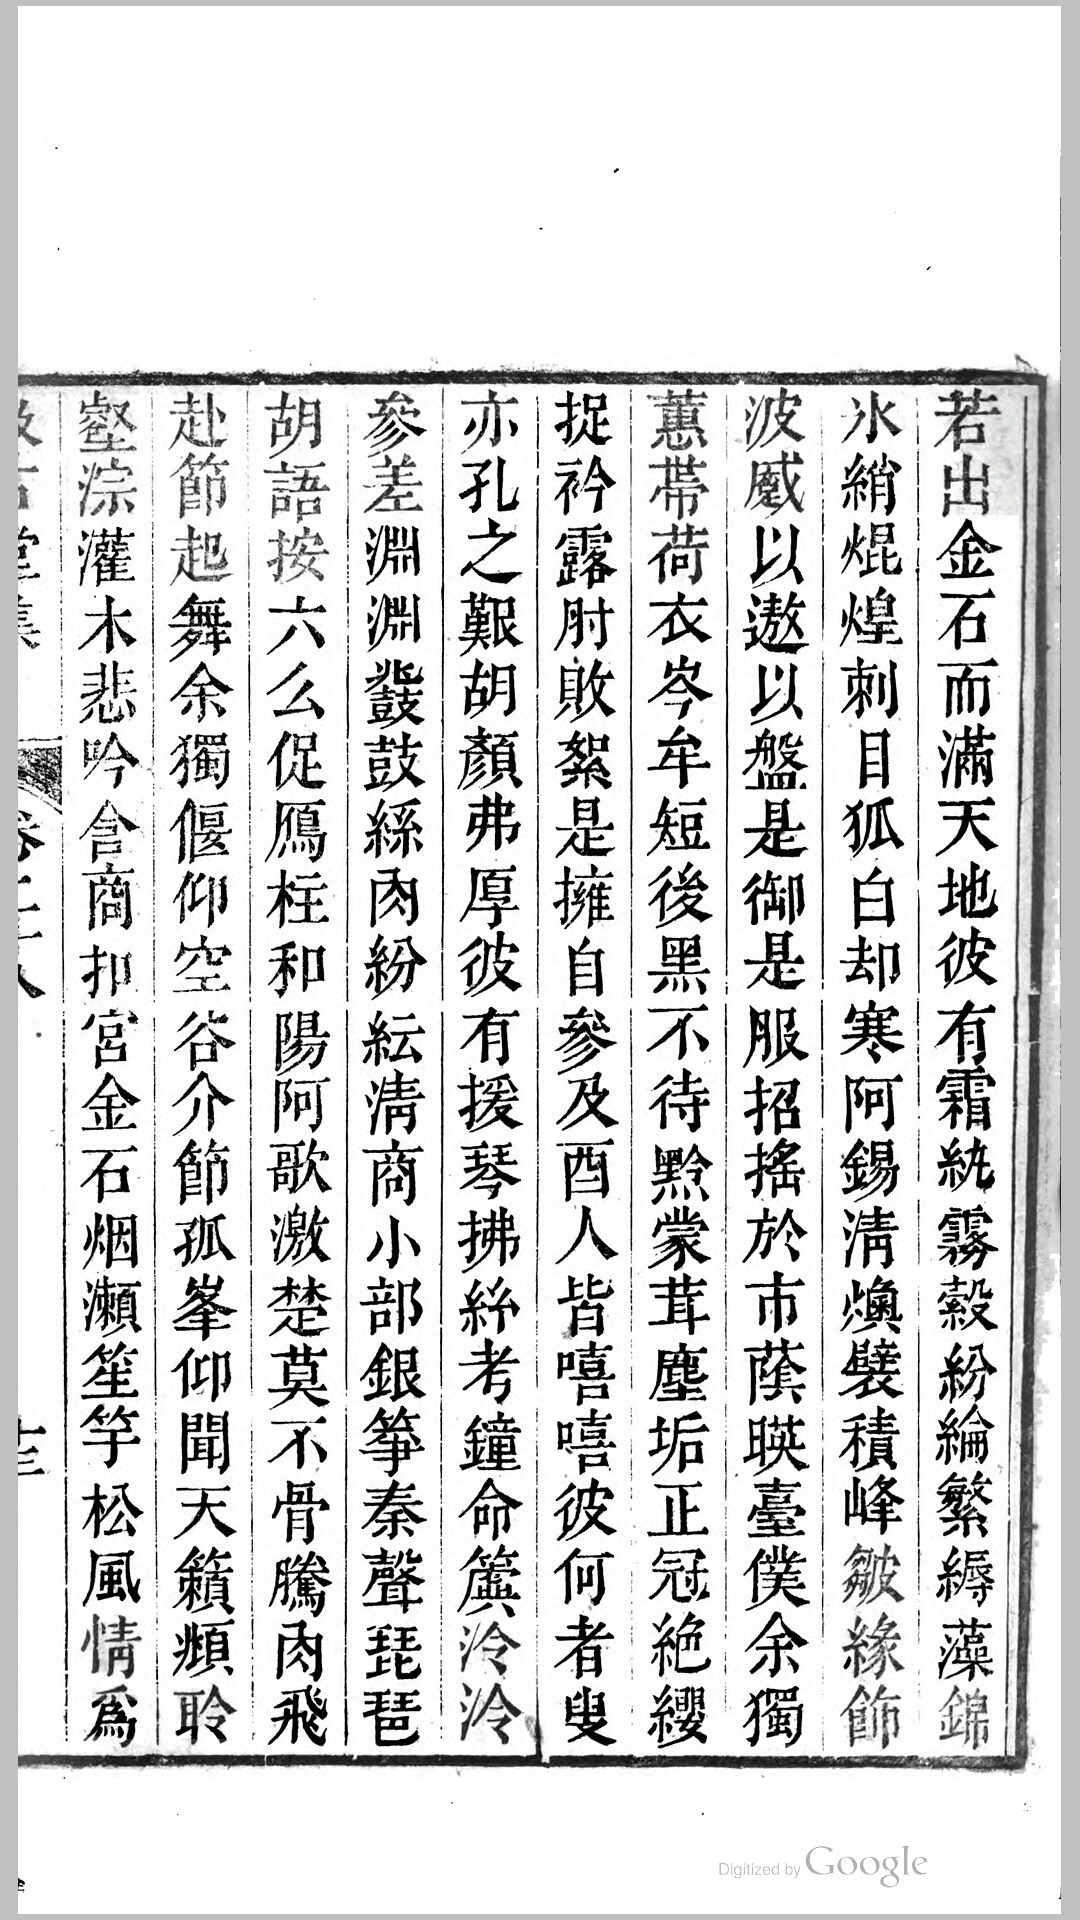 若出金石而滿天地彼有霜紈霧縠紛綸繁縟藻錦
氷綃焜煌刺目狐白却寒阿錫清煥襞積峰皺緣飾
波蹙以遨以盤是御是服招搖於市蔭暎臺僕余獨
蕙帶荷衣岑牟短後黑不待黔蒙茸塵垢正冠絶纓
捉衿露肘敗絮是擁自參及酉人皆嘻嘻彼何者叟
亦孔之艱胡顏弗厚彼有援琴拂絲考鐘命簴泠泠
參差淵淵鼗鼓絲肉紛紜清商小部銀箏秦聲琵琶
胡語按六么促鴈柱和陽阿歌激楚莫不骨騰肉飛
赴節起舞余獨偃仰空谷介節孤峯仰聞天籟頫聆
壑淙灌木悲吟含商扣宮金石烟瀨笙竽松風情爲
堂集
卷二十八
十三
Digitized by Google